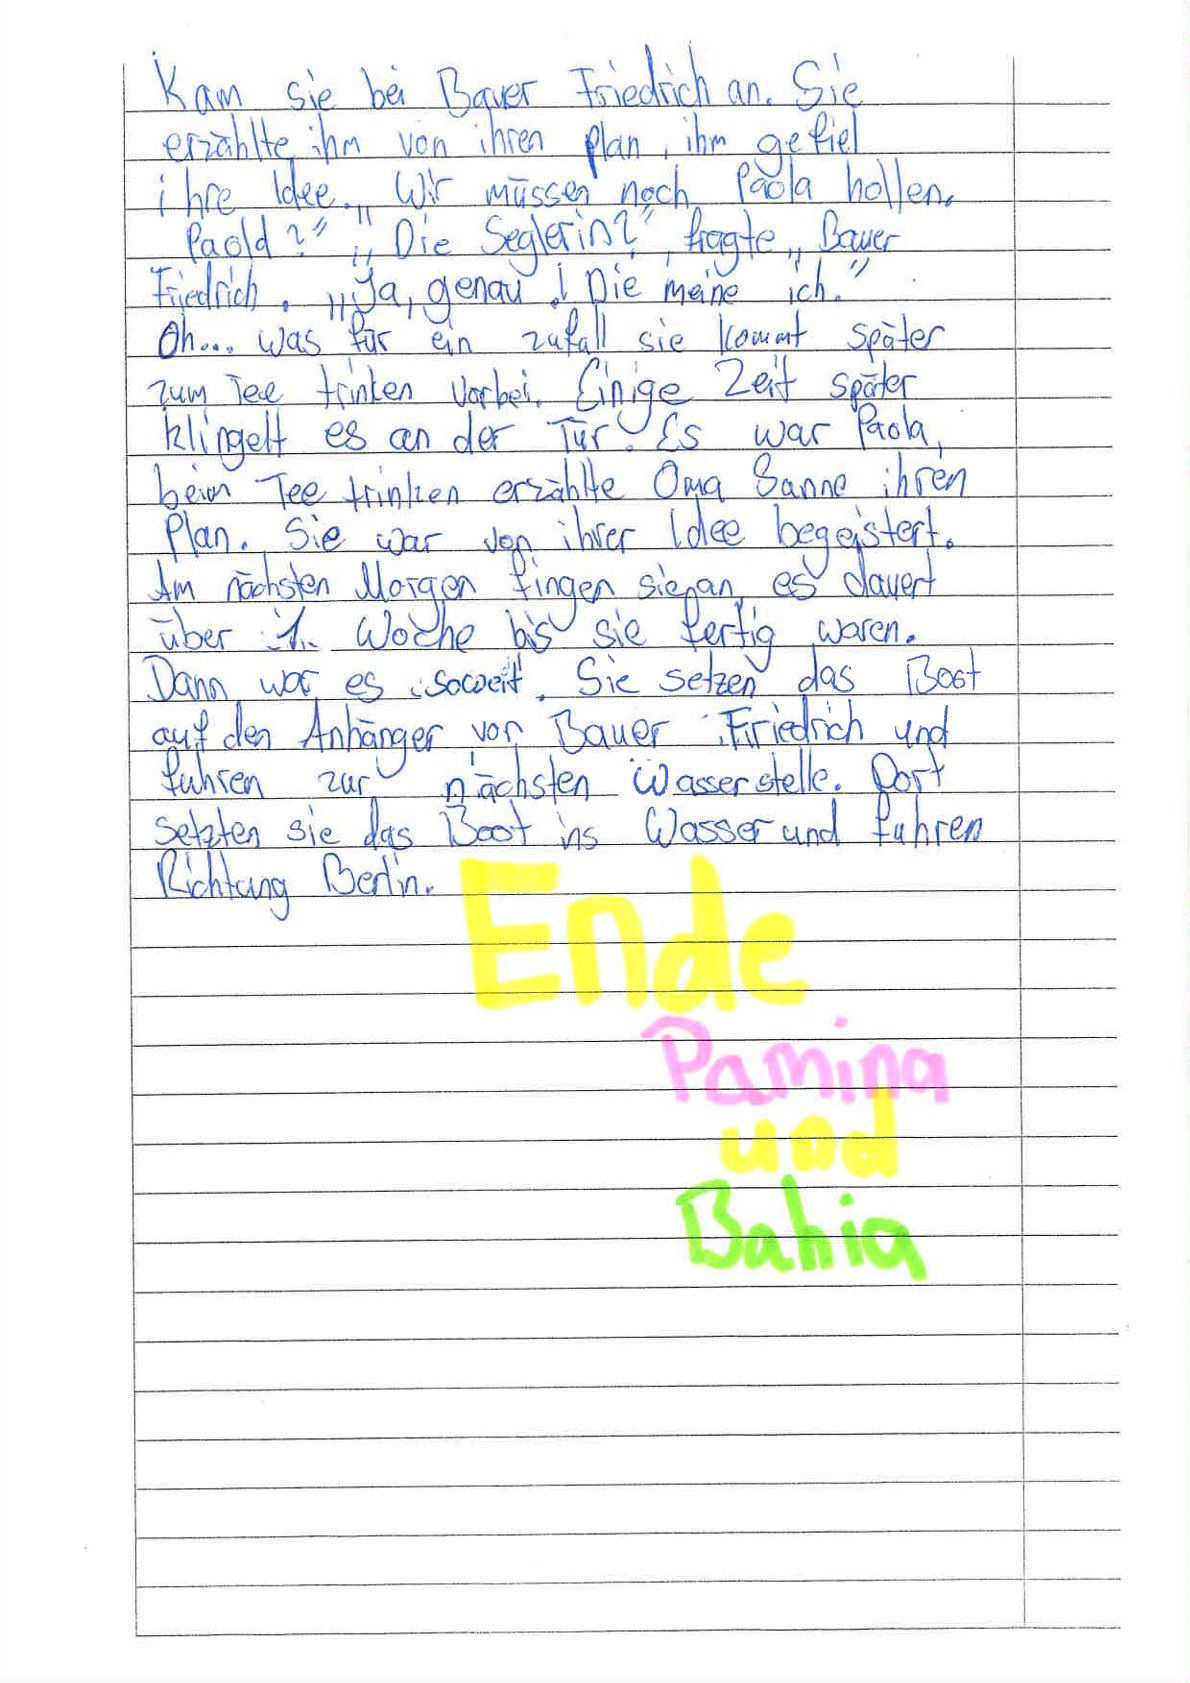 Kam sie bei Bauer Friedrich an. Sie
erzählte ihm von ihren plan, ihm gefiel
ihre Idee. „Wir müssen noch Paola hollen.
Paola?" „Die Seglerin?", fragte „Bauer
Friedrich. „Ja, genau! Die meine ich."
Oh... was für ein zufall sie kommt später
zum Tee trinken vorbei. Einige Zeit später
klingelt es an der Tür. Es war Paola,
beim Tee trinken erzählte Oma Sanne ihren
Plan. Sie war von ihrer Idee begeistert.
Am nächsten Morgen fingen sie an, es dauert
über 1. Woche bis sie fertig waren.
Dann war es soweit. Sie setzen das Boot
auf den Anhänger von Bauer Friedrich und
fuhren zur nächsten Wasserstelle. Dort
setzten sie das Boot ins Wasser und fuhren
Richtung Berlin.
Ende
Pamina
und
Bahia